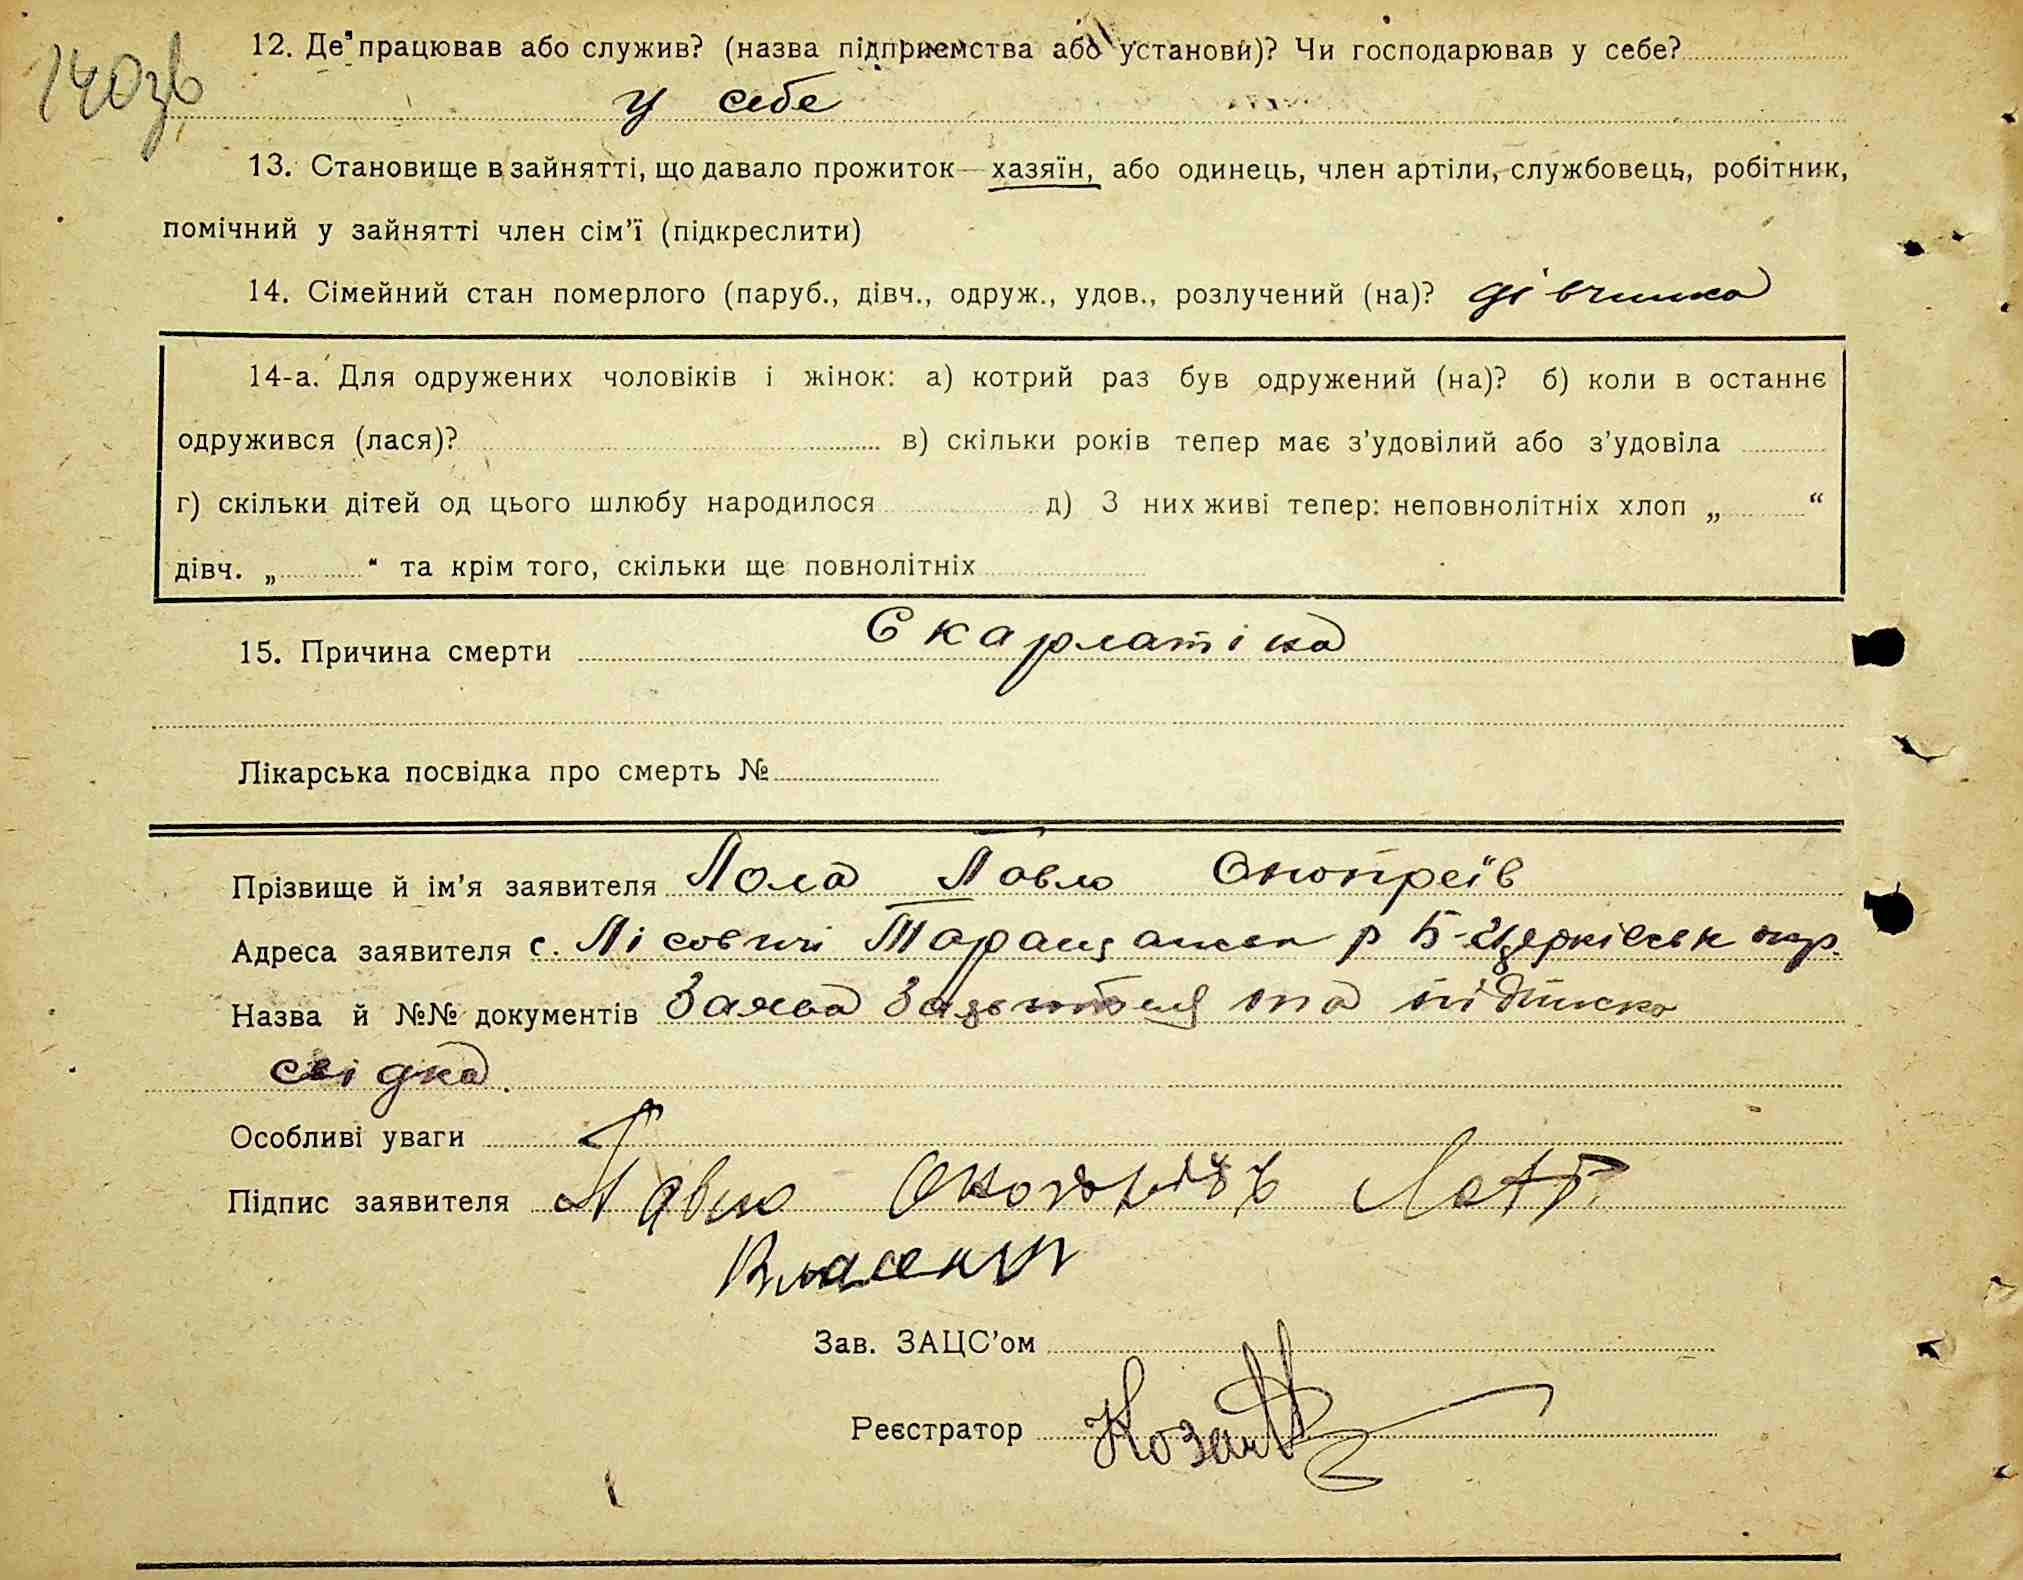 140зв
12. Де працював або служив? (назва підприємства або установи)? Чи господарював у себе?
у себе
13. Становище в зайнятті, що давало прожиток — хазяїн, або одинець, член артіли, службовець, робітник,
помічний у зайнятті член сім'ї (підкреслити)
14. Сімейний стан померлого (паруб., дівч., одруж., удов., розлучений (на)? дівчинка
14-а. Для одружених чоловіків і жінок: а) котрий раз був одружений (на)? б) коли в останнє
одружився (лася)? в) скільки років тепер має з'удовілий або з'удовіла
г) скільки дітей од цього шлюбу народилося д) З них живі тепер: неповнолітніх хлоп „ “
дівч. „ “ та крім того, скільки ще повнолітніх
15. Причина смерти Скарлатіна
Лікарська посвідка про смерть №
Прізвище й ім'я заявителя Лола Павло Онопреїв
Адреса заявителя с. Лісовичі Таращанськ р Б-Церківськ окр.
Назва й №№ документів Заява та підписка
свідка.
Особливі уваги
Підпис заявителя Павло
Зав. ЗАЦС'ом
Реєстратор